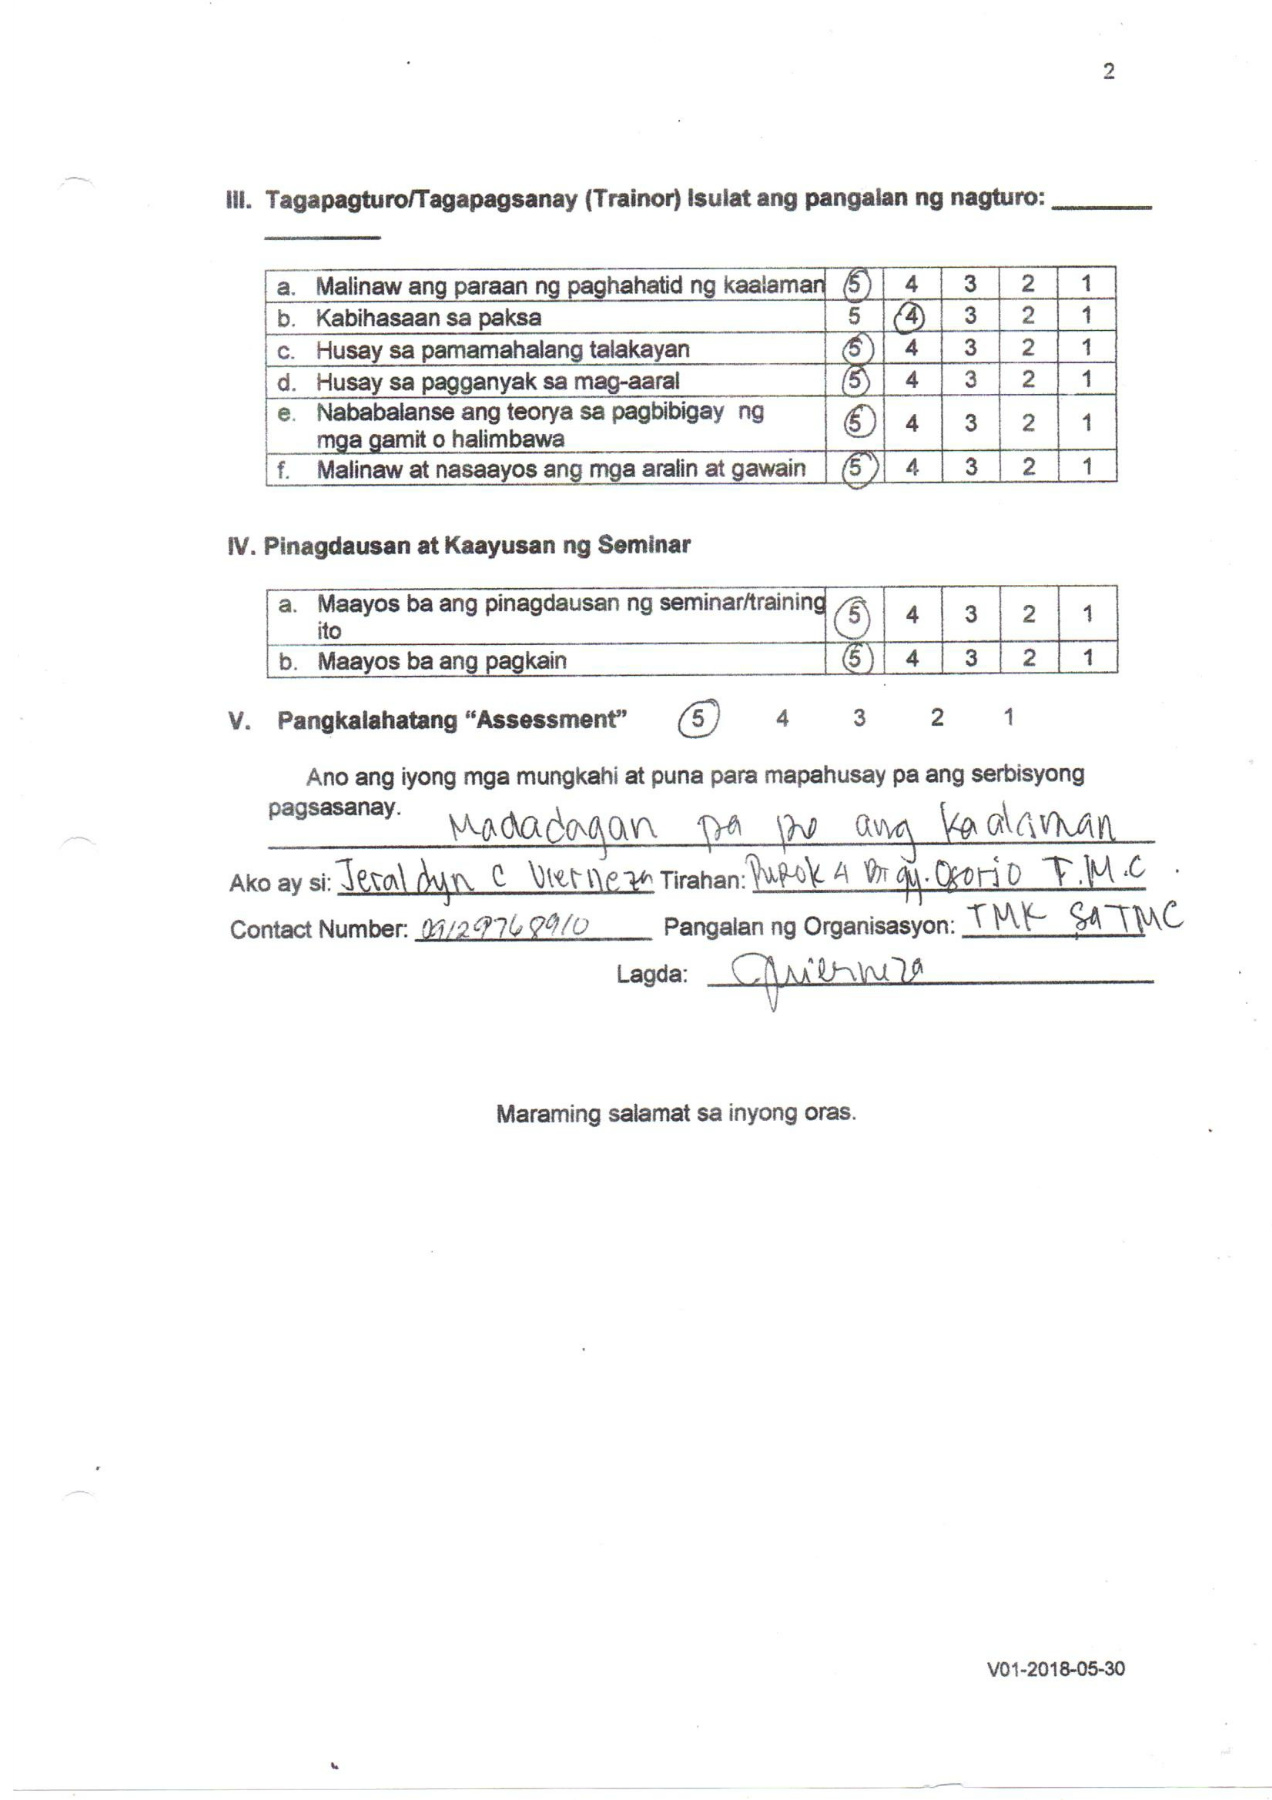 2
III. Tagapagturo/Tagapagsanay (Trainor) Isulat ang pangalan ng nagturo:
a. Malinaw ang paraan ng paghahatid ng kaalaman 5 4 3 2 1
b. Kabihasaan sa paksa 5 4 3 2 1
c. Husay sa pamamahalang talakayan 5 4 3 2 1
d. Husay sa pagganyak sa mag-aaral 5 4 3 2 1
e. Nababalanse ang teorya sa pagbibigay ng
mga gamit o halimbawa 5 4 3 2 1
f. Malinaw at nasaayos ang mga aralin at gawain 5 4 3 2 1
IV. Pinagdausan at Kaayusan ng Seminar
a. Maayos ba ang pinagdausan ng seminar/training
ito 5 4 3 2 1
b. Maayos ba ang pagkain 5 4 3 2 1
V. Pangkalahatang “Assessment” 5 4 3 2 1
Ano ang iyong mga mungkahi at puna para mapahusay pa ang serbisyong
pagsasanay. Madadagan pa po ang kaalaman
Ako ay si: Jeraldyn C Vierneza Tirahan: Purok 4 Brgy. Osorio T.M.C
Contact Number: 09129768910 Pangalan ng Organisasyon: TMK sa TMC
Lagda:
Maraming salamat sa inyong oras.
V01-2018-05-30